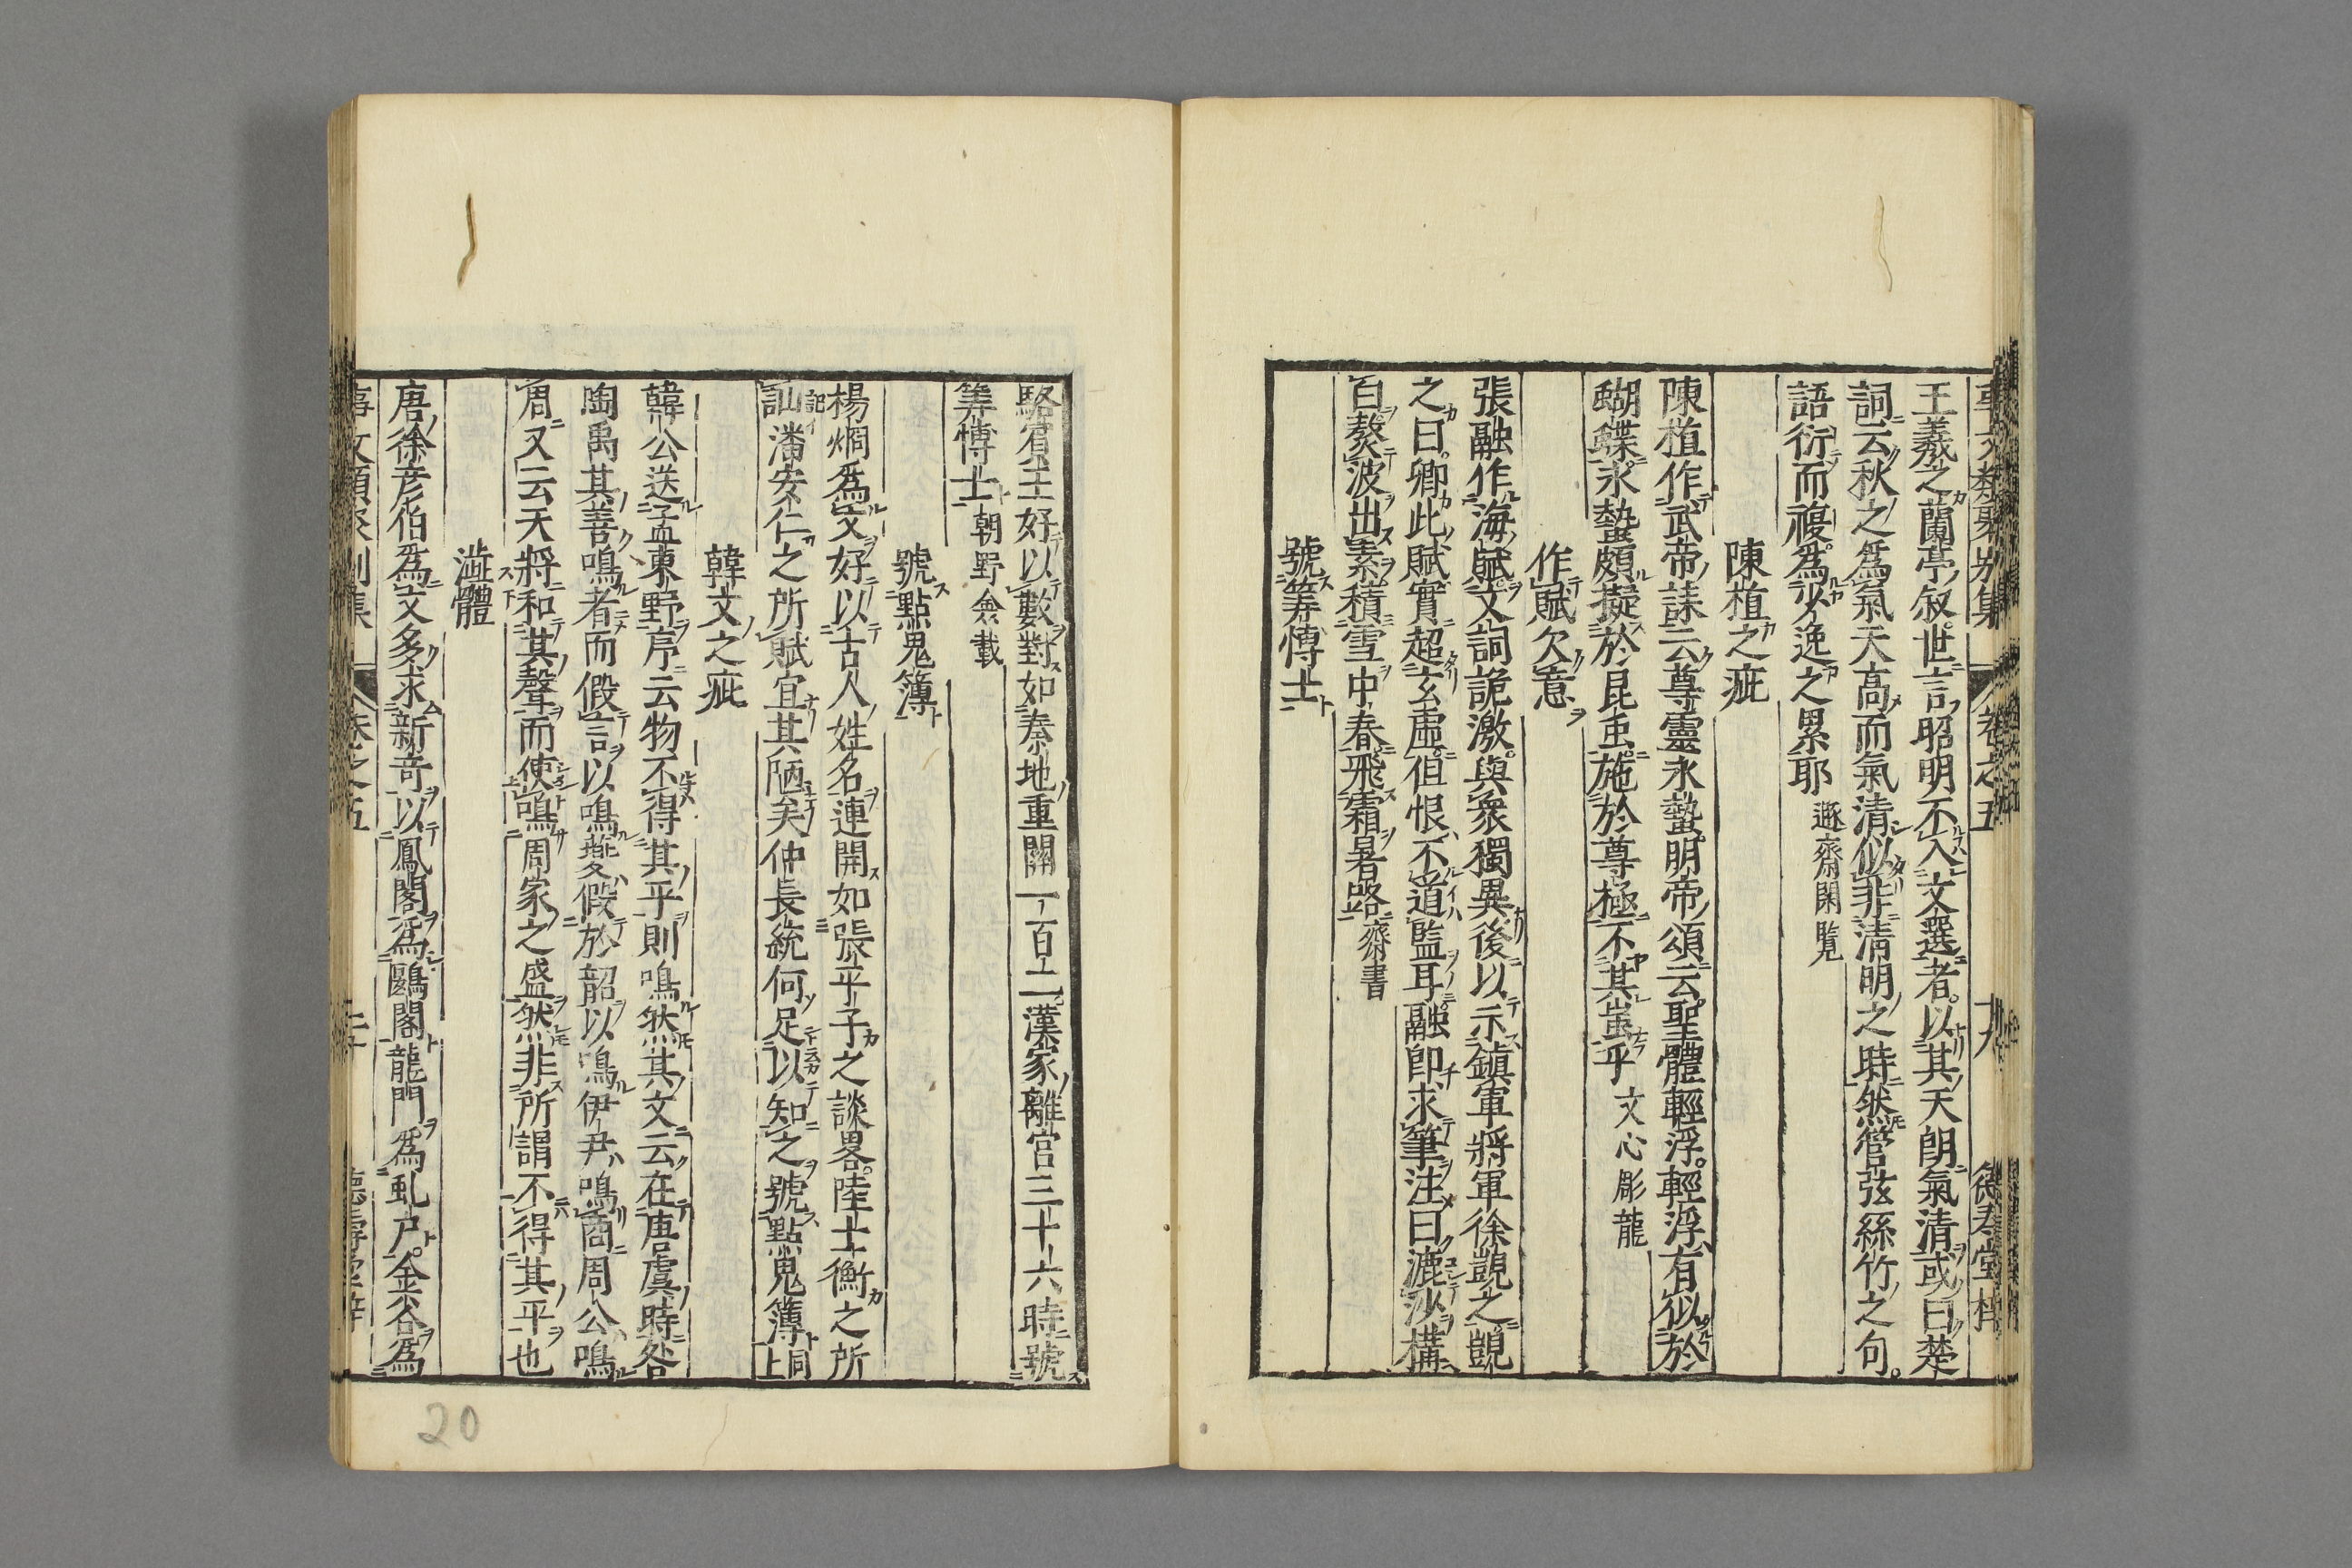 事文類聚別集 卷之五 十九 德壽堂梓
王羲之蘭亭叙世言昭明不入文選者以其天朗氣清或曰楚
詞云秋之爲氣天高而氣清似非清明之時然管弦絲竹之句
語衍而複爲少逸之累耶 遯齋閑覧
陳植之疵
陳植作武帝誄云尊靈永蟄明帝頌云聖體輕浮輕浮有似於
蝴蝶永蟄頗擬於昆虫施於尊極不其蚩乎 文心彫龍
作賦欠意
張融作海賦文詞詭激與衆獨異後以示鎮軍將軍徐覬之覬
之曰卿此賦實超玄虛但恨不道監耳融卽求筆注曰漉沙構
白熬波出素積雪中春飛霜暑路 齋書
號筭博士
駱賓王好以數對如秦地重關一百二漢家離宮三十六時號
筭博士 朝野僉載
號點鬼簿
楊烱爲文好以古人姓名連開如張平子之談畧陸士衡之所
記潘安仁之所賦宜其陋矣仲長統何足以知之號點鬼簿 同上
韓文之疵
韓公送孟東野序云物不得其平則鳴然其文云在唐虞時咎
陶禹其善鳴者而假言以鳴夔假於韶以鳴伊尹鳴商周公鳴
周又云天將和其聲而使鳴周家之盛然非所謂不得其平也
澁體
唐徐彦伯爲文多求新竒以鳳閣爲鷗閣龍門爲虬户金谷爲
事文類聚別集 卷之五 二十 德壽堂梓
20